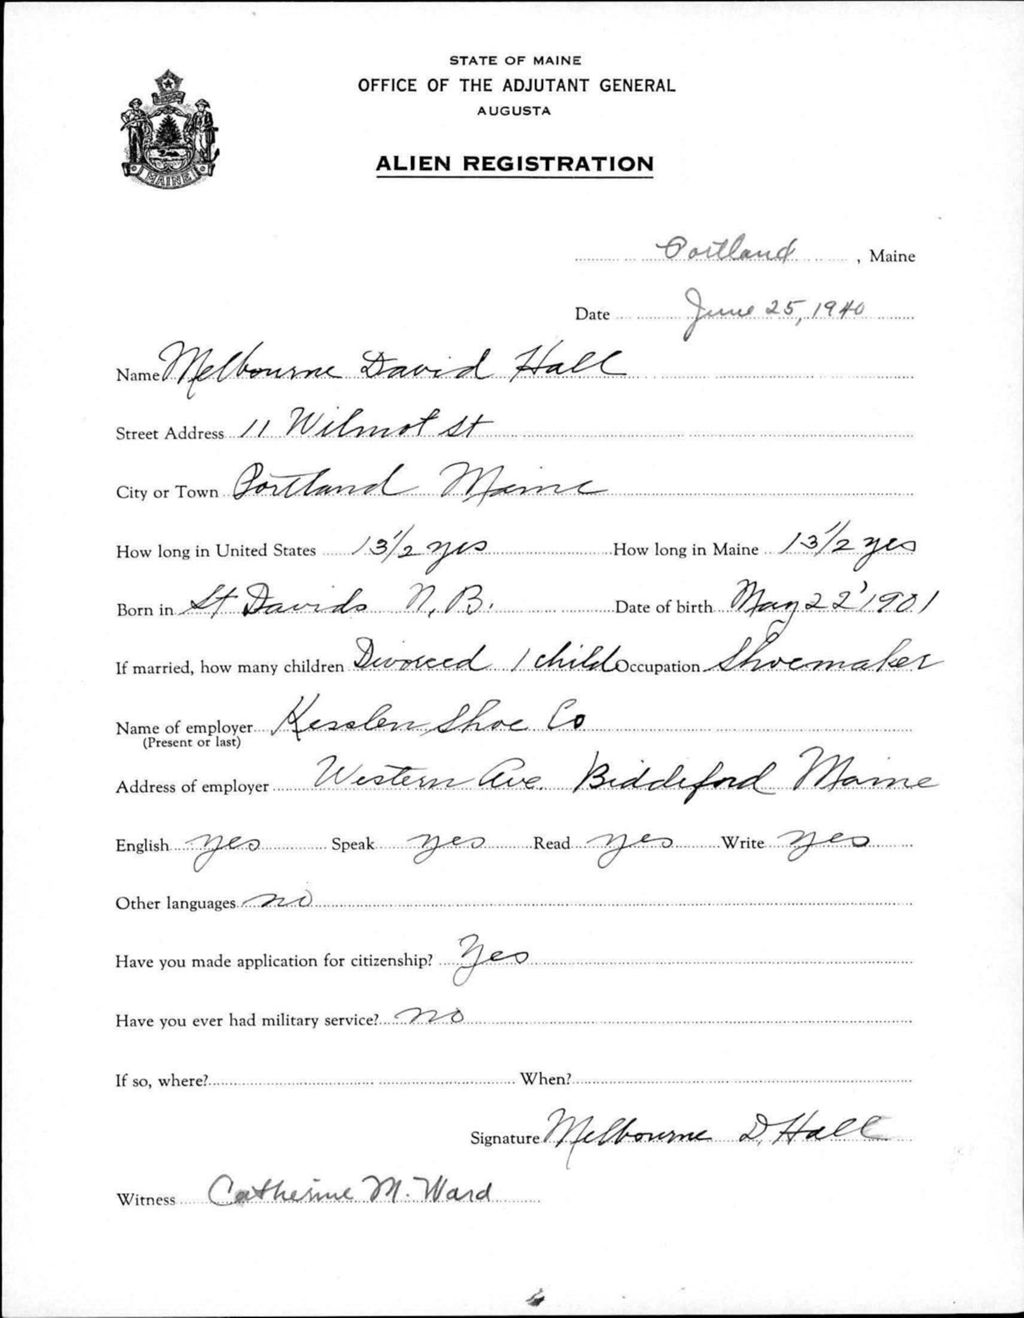 STATE OF MAINE
OFFICE OF THE ADJUTANT GENERAL
AUGUSTA
ALIEN REGISTRATION
MAINE
Portland, Maine
Date June 25, 1940
Name Melbourne David Hall
Street Address 11 Wilmot St
City or Town Portland Maine
How long in United States 13 1/2 yrs How long in Maine 13 1/2 yrs
Born in St Davids N.B. Date of birth May 22' 1901
If married, how many children Divorced 1 child Occupation Shoemaker
Name of employer Kesslen Shoe Co
(Present or last)
Address of employer Western Ave. Biddeford Maine
English yes Speak yes Read yes Write yes
Other languages no
Have you made application for citizenship? Yes
Have you ever had military service? no
If so, where? When?
Signature Melbourne D. Hall
Witness Catherine M. Ward